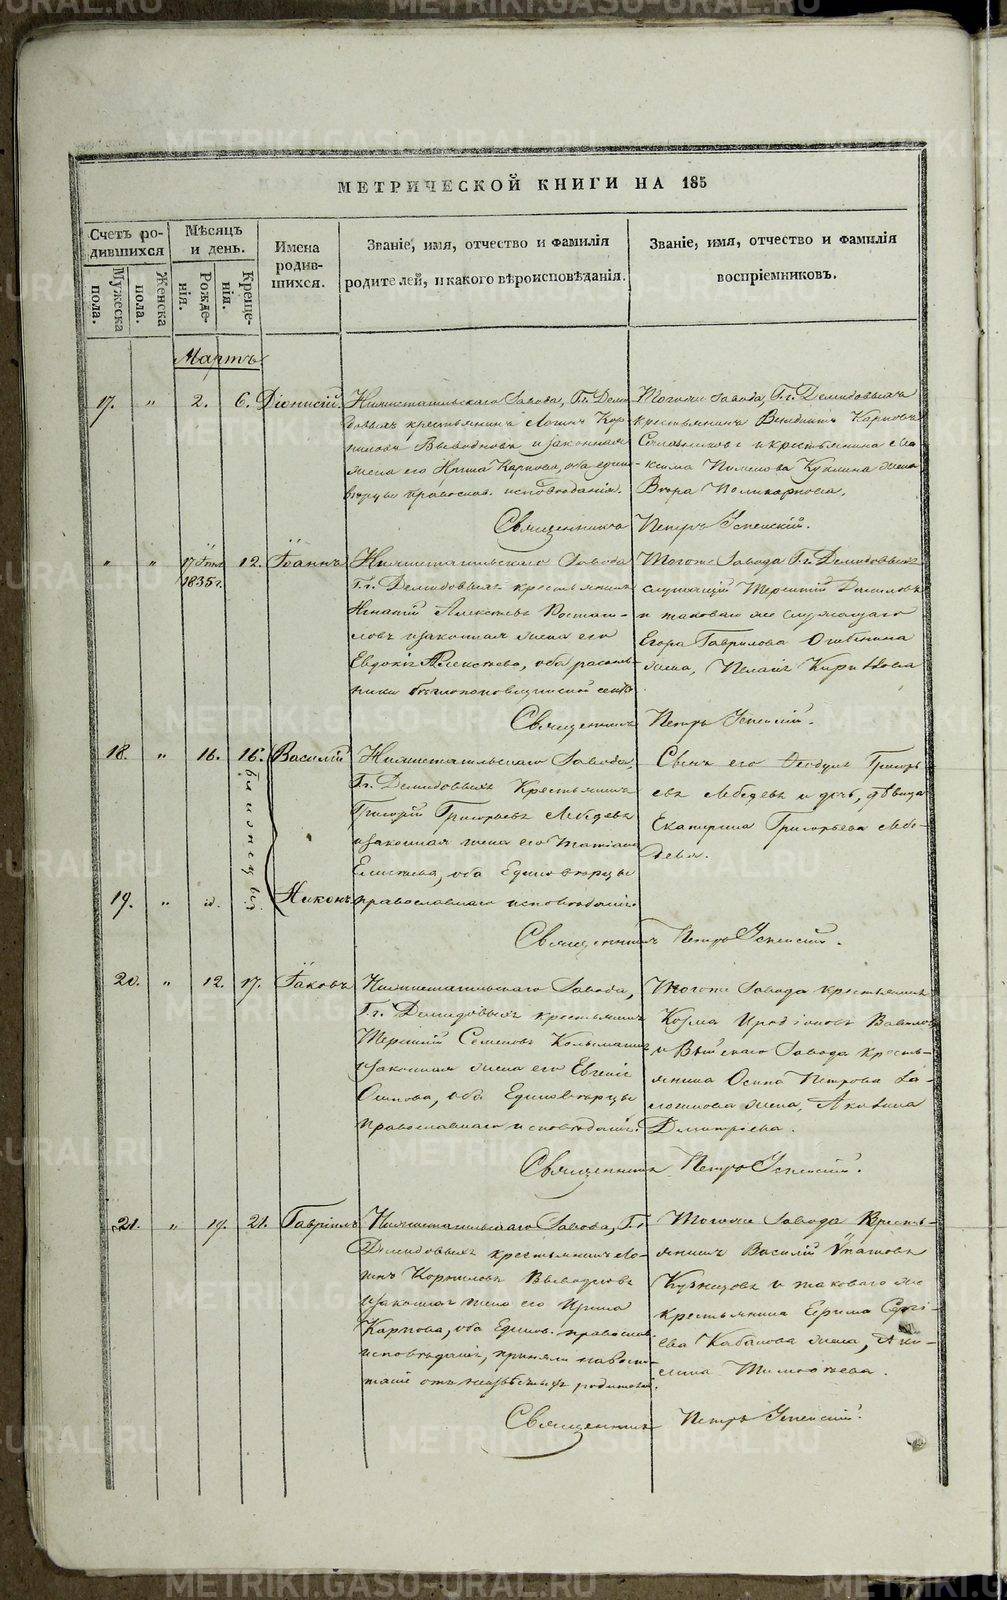 МЕТРИЧЕСКОЙ КНИГИ НА 185
Счетъ ро-
дившихся
Мужеска
пола.
Женска
пола.
Мѣсяцъ
и день.
Рожде-
нія.
Креще-
нія.
Имена
родив-
шихся.
Званіе, имя, отчество и фамилія
родителей, и какого вѣроисповѣданія.
Званіе, имя, отчество и фамилія
воспріемниковъ.
Мартъ
17. " 2. 6. Діонисій.
Нижнетагильскаго Завода, Гг. Деми-
довыхъ крестьянинъ Логинъ Кор-
ниловъ Выводновъ и законная
жена его Ирина Карпова, оба едино-
вѣрцы православ. исповѣданія.
Тогоже Завода, Гг. Демидовыхъ
крестьянинъ Карповъ
и крестьянина Мак-
сима Пименова жена
Вѣра Поликарпова.
Священникъ Петръ Успенскій.
" " 1835 г. 12. Іоаннъ
Нижнетагильскаго Завода
Гг. Демидовыхъ крестьянинъ
Алексѣевъ
и законная жена его
Евдокія Алексѣева, оба расколь-
ники бѣглопоповщинской секты
Тогоже Завода Гг. Демидовыхъ
служащій Терентій
и таковаго же служащаго
Егора Гаврилова
жена, Пелагія Кирилова
Священникъ Петръ Успенскій.
18. " 16. 16. Василій
близнецы
Нижнетагильскаго Завода,
Гг. Демидовыхъ Крестьянинъ
Григорій Григорьевъ Лебедевъ
и законная жена его Татіана
Елисѣева, оба Единовѣрцы
Сынъ его Ѳеодулъ Григорь-
евъ Лебедевъ и дочь, дѣвица
Екатерина Григорьева Лебе-
дева.
19. " id. Никонъ
православнаго исповѣданія.
Священникъ Петръ Успенскій.
20. " 12. 17. Іаковъ
Нижнетагильскаго Завода,
Гг. Демидовыхъ крестьянинъ
Терентій Семеновъ
и законная жена его Евгенія
Осипова, оба Единовѣрцы
православнаго исповѣданія.
Тогоже Завода крестьянинъ
Козма Иродіоновъ Вавиловъ
и Выйскаго Завода кресть-
янина Осипа Петрова
жена, Акилина
Дмитріева.
Священникъ Петръ Успенскій.
21. " 19. 21. Гавріилъ
Нижнетагильскаго Завода, Гг.
Демидовыхъ крестьянинъ Ло-
гинъ Корниловъ Выводновъ
и законная жена его Ирина
Карпова, оба Единов. православ.
исповѣданія, приняли на воспи-
таніе отъ неизвѣстныхъ родителей.
Тогоже Завода Кресть-
янинъ Василій Ѵпатовъ
Кузнецовъ и таковаго же
крестьянина Ефима Сергі-
ева Кабанова жена, Аку-
лина Тимоѳеева.
Священникъ Петръ Успенскій.
METRIKI.GASO-URAL.RU